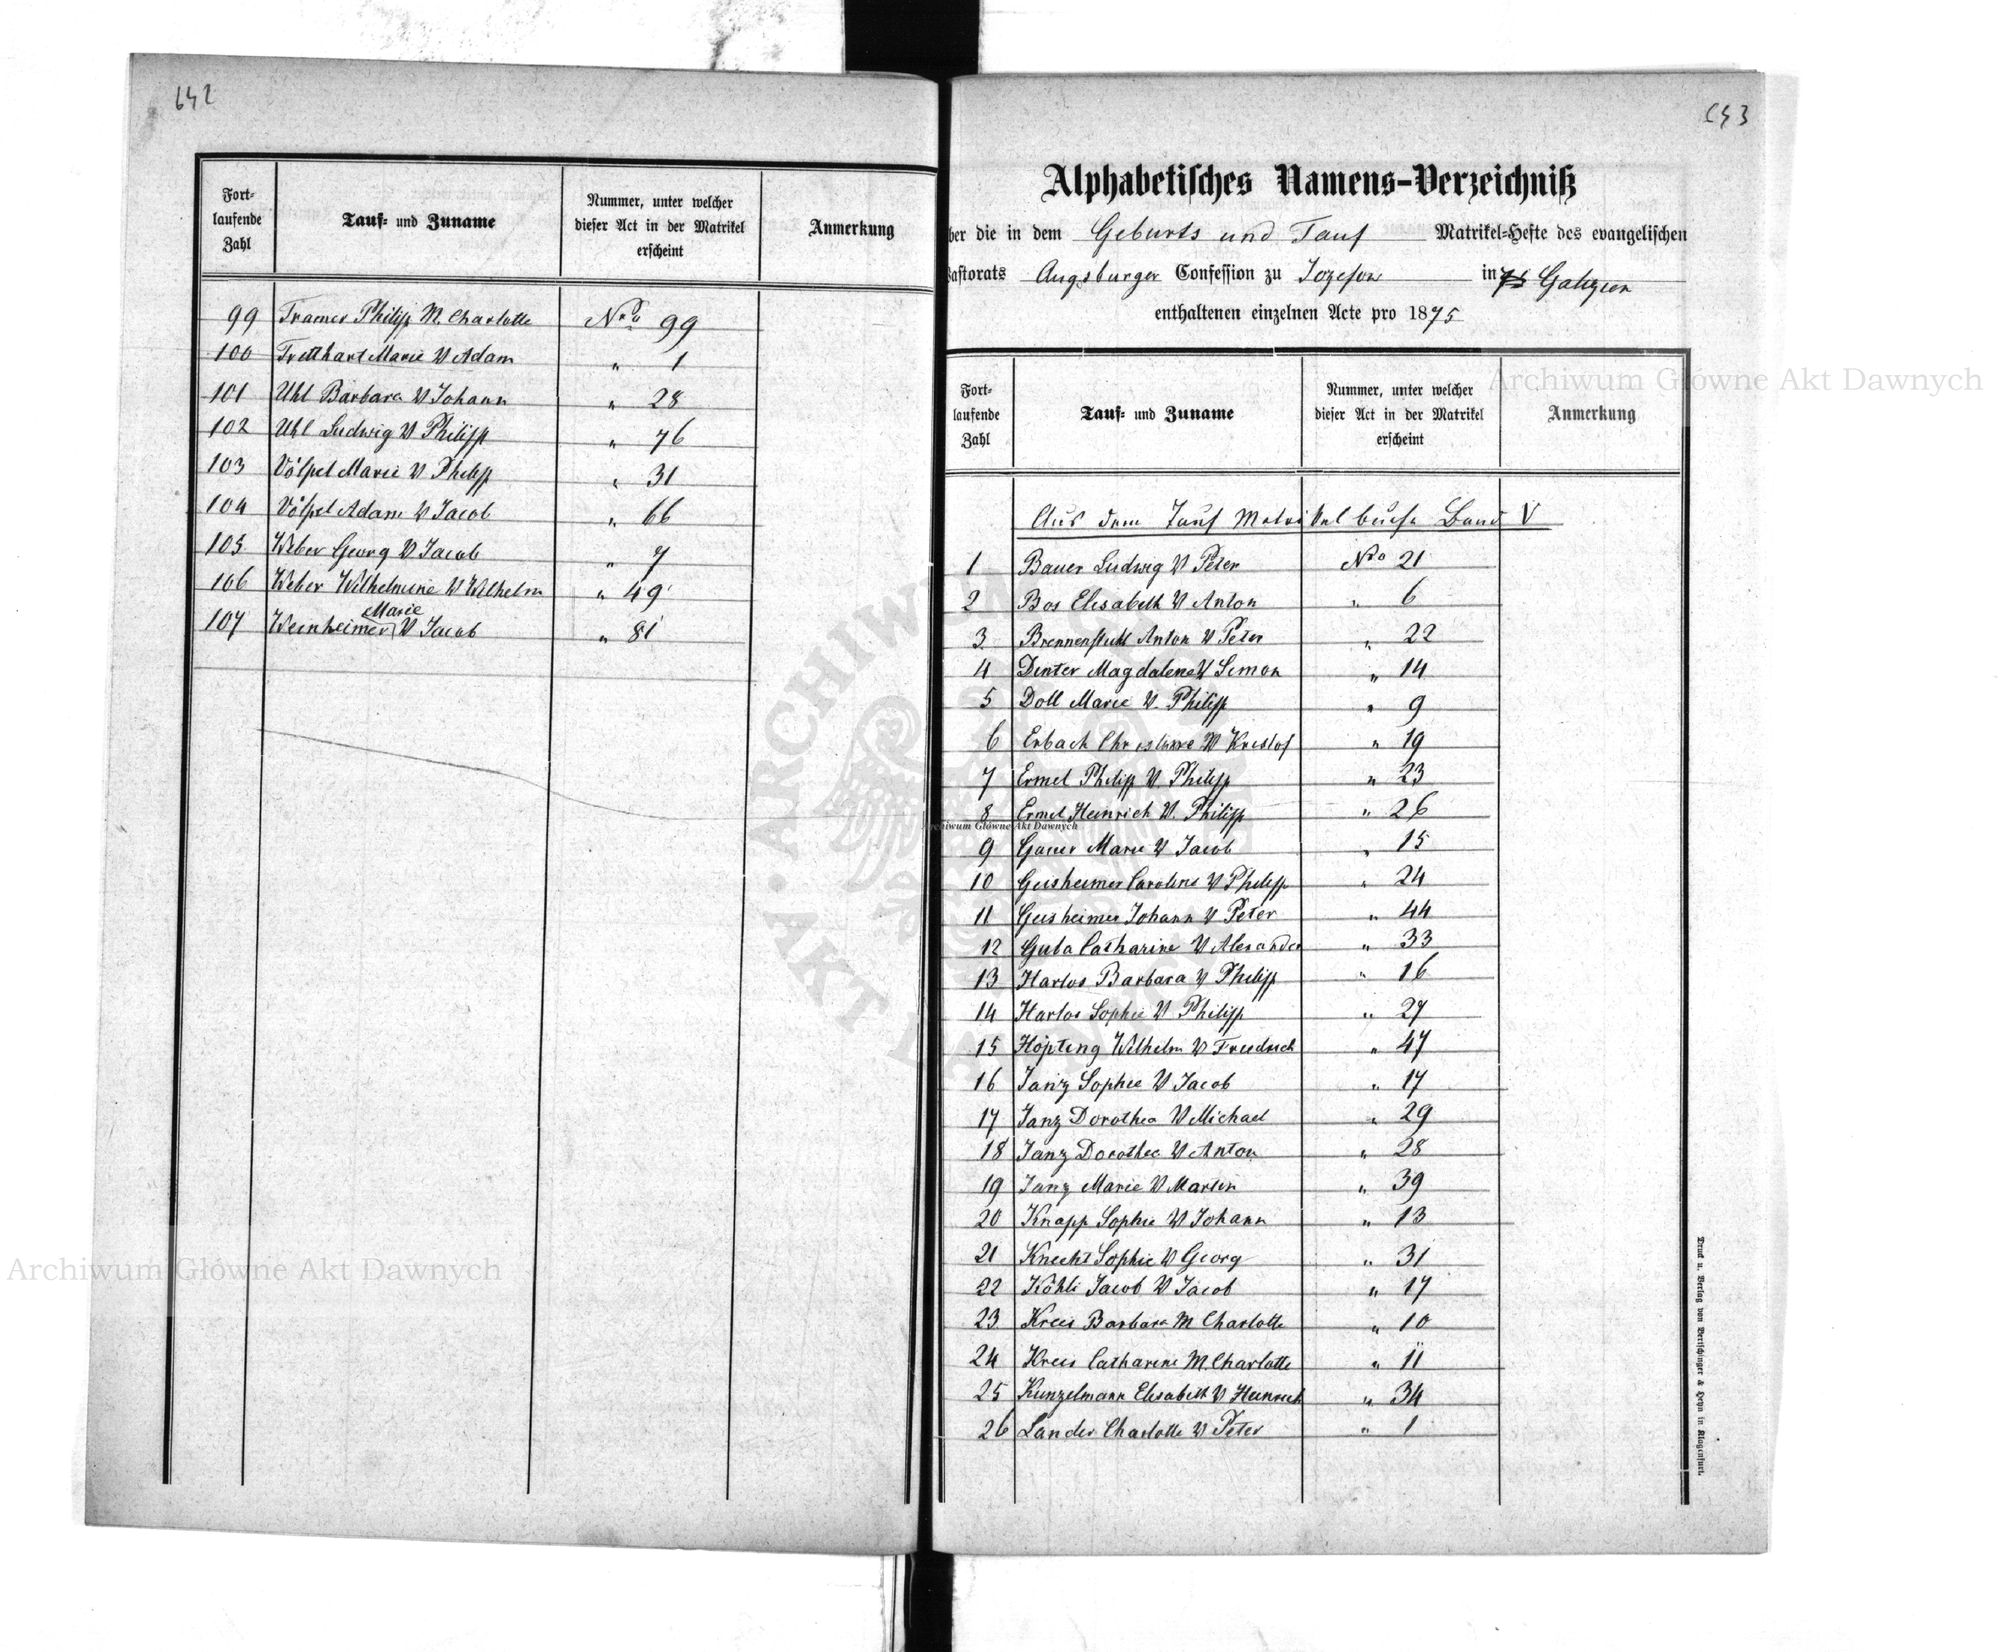 642
Fort-
laufende
Zahl
Tauf- und Zuname
Nummer, unter welcher
dieser Act in der Matrikel
erscheint
Anmerkung
99 Tramer Philipp M. Charlotte Nro 99
100 Tretthart Marie V Adam " 1
101 Uhl Barbara V Johann " 28
102 Uhl Ludwig V Philipp " 76
103 Völpel Marie V Philipp " 31
104 Völpel Adam V Jacob " 66
105 Weber Georg V Jacob " 7
106 Weber Wilhelmine V Wilhelm " 49
Marie
107 Weinheimer V Jacob " 81
643
Alphabetisches Namens-Verzeichniß
ber die in dem Geburts und Tauf Matrikel-Hefte des evangelischen
Pastorats Augsburger Confession zu Jozefow in Galizien
enthaltenen einzelnen Acte pro 1875
Fort-
laufende
Zahl
Tauf- und Zuname
Nummer, unter welcher
dieser Act in der Matrikel
erscheint
Anmerkung
Aus dem Tauf Matrikelbuche Band V
1 Bauer Ludwig V Peter Nro 21
2 Bos Elisabeth V Anton " 6
3 Brennenstuhl Anton V Peter " 22
4 Dinter Magdalene V Simon " 14
5 Doll Marie V. Philipp " 9
6 Erbach Christine V Kristof " 19
7 Ermel Philipp V. Philipp " 23
8 Ermel Heinrich V. Philipp " 26
9 Gauer Marie V Jacob " 15
10 Geisheimer Caroline V Philipp " 24
11 Geisheimer Johann V Peter " 44
12 Guba Catharine V Alexander " 33
13 Harlos Barbara V Philipp " 16
14 Harlos Sophie V Philipp " 27
15 Höpting Wilhelm V Friedrich " 47
16 Janz Sophie V Jacob " 17
17 Janz Dorothea V Michael " 29
18 Janz Dorothea V Anton " 28
19 Janz Marie V Martin " 39
20 Knapp Sophie V Johann " 13
21 Knecht Sophie V Georg " 31
22 Köhli Jacob V Jacob " 17
23 Kreis Barbara M Charlotte " 10
24 Kreis Catharine M. Charlotte " 11
25 Kunzelmann Elisabeth V Heinrich " 34
26 Lander Charlotte V Peter " 1
Druck u. Verlag von Bertschinger & Heyn in Klagenfurt.
Archiwum Główne Akt Dawnych
Archiwum Główne Akt Dawnych
Archiwum Główne Akt Dawnych